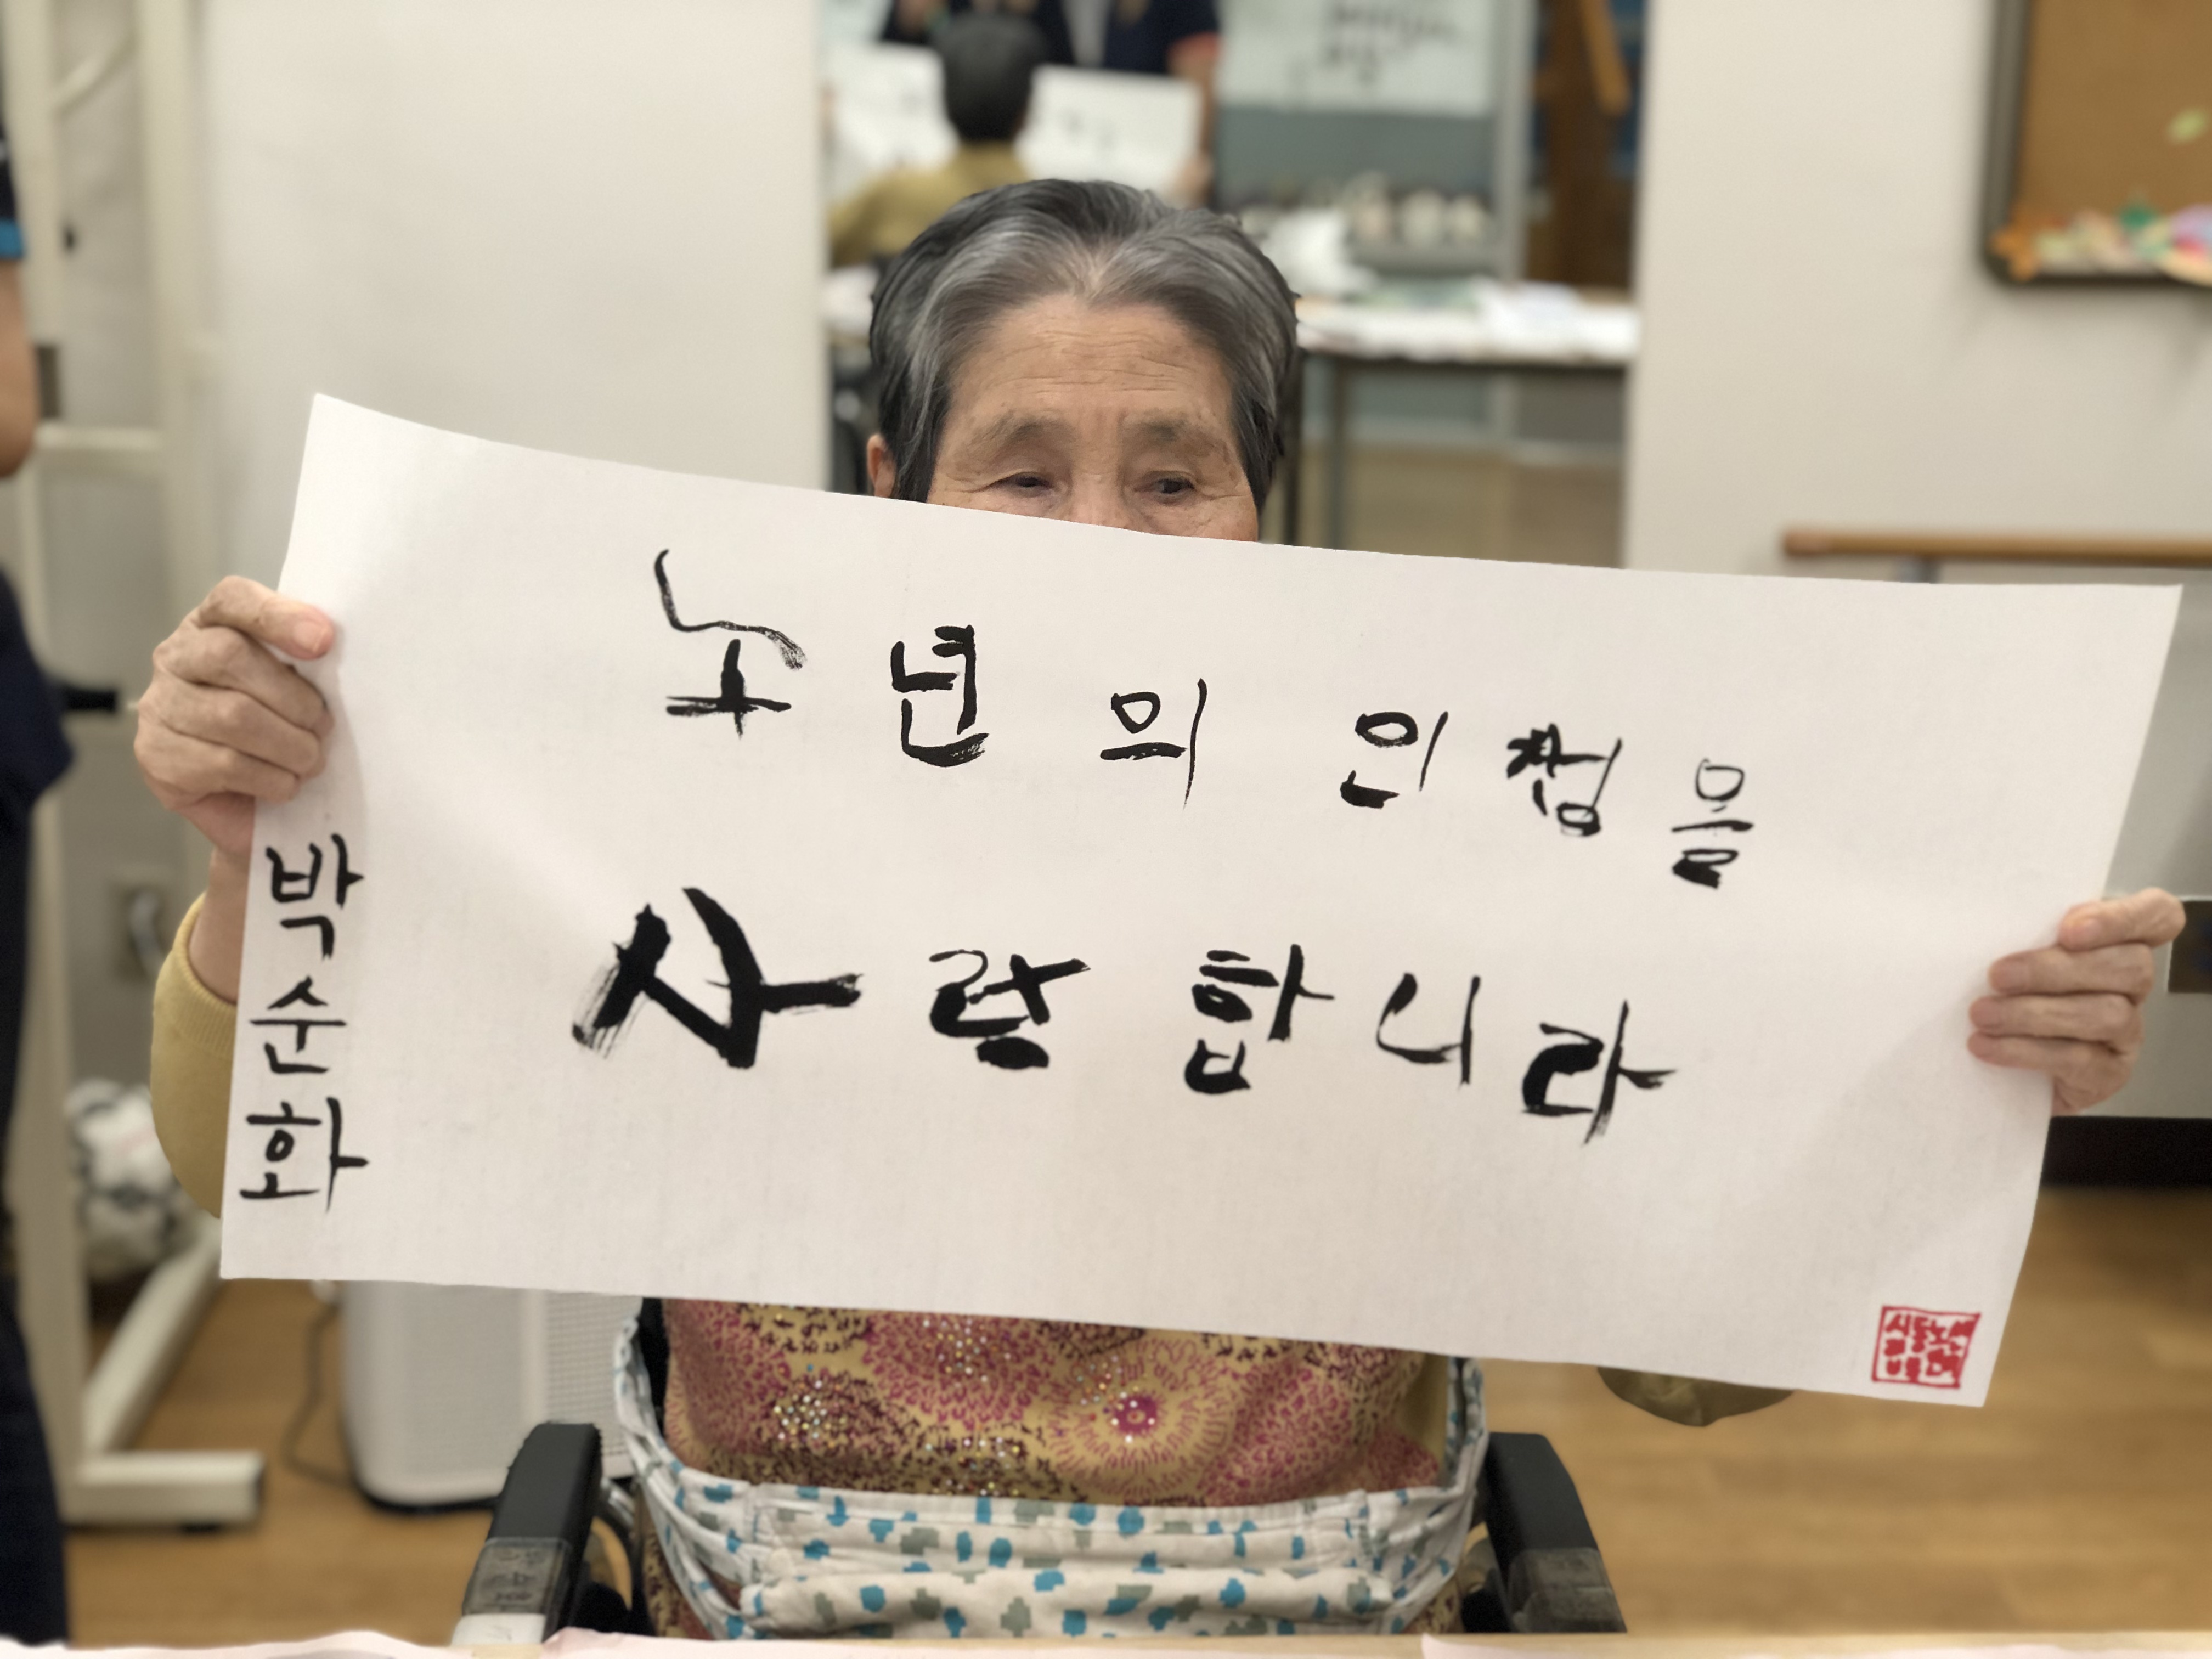 노년의 인청을
사랑합니라
박순화